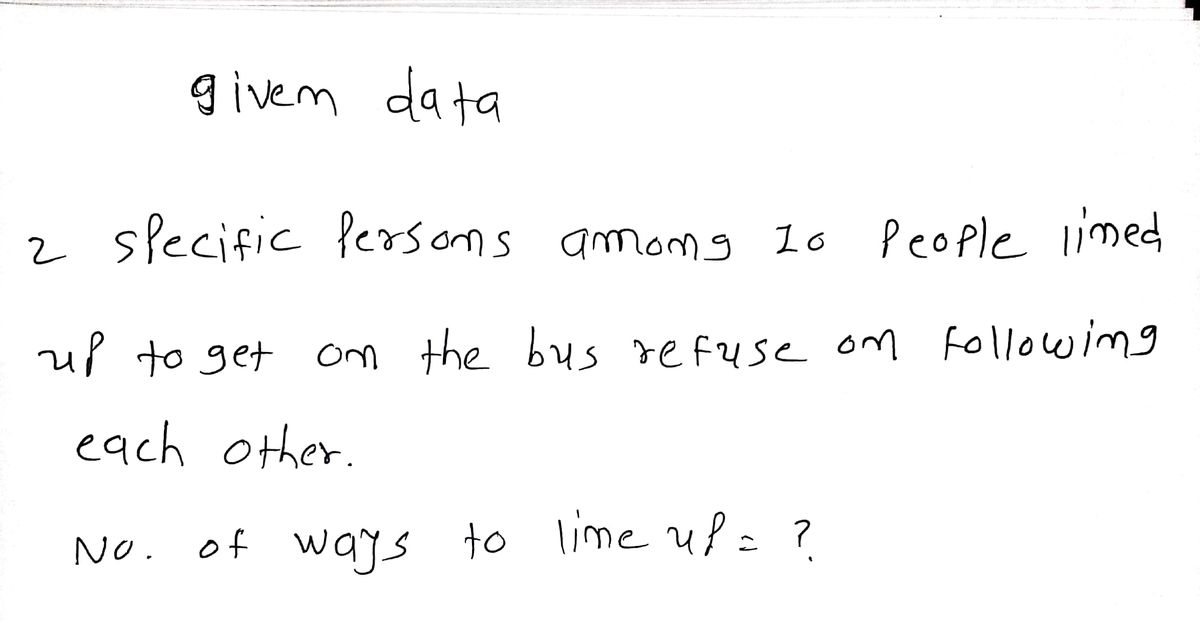 given data
2 specific persons among 10 people lined
up to get on the bus refuse on following
each other.
No. of ways to line up = ?